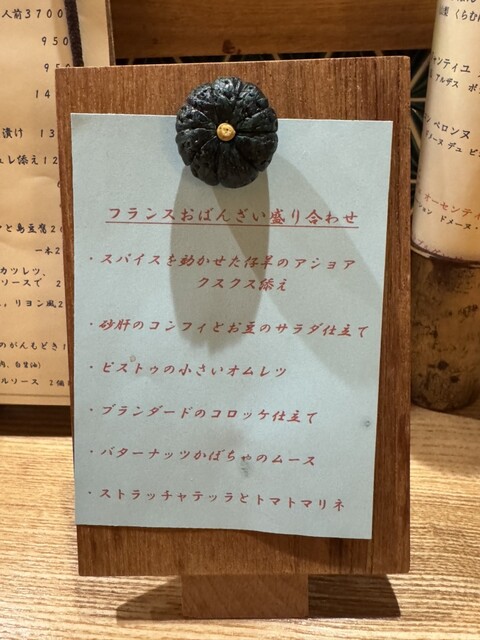 フランスおばんざい盛り合わせ
・スパイスを効かせた仔羊のアショア
クスクス添え
・砂肝のコンフィとお豆のサラダ仕立て
・ピストゥの小さいオムレツ
・ブランダードのコロッケ仕立て
・バターナッツかぼちゃのムース
・ストラッチャテッラとトマトマリネ
人前3700
950
950
漬け 13
ュレ添え12
と島豆腐2
一本2
カツレツ、
ソースで 2
、リヨン風2
のがんもどき1
ルソース 2個
ャンティユ
ペロンヌ
オーセンティ
ション ドメーヌ